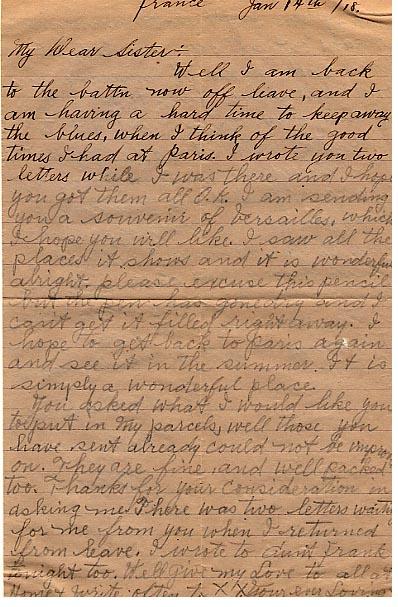 France Jan 14th/18.
My Dear Sister:-
Well I am back
to the battn now off leave, and I
am having a hard time to keep away
the blues, when I think of the good
times I had at Paris. I wrote you two
letters while I was there and I hope
you got them all O.K. I am sending
you a souvenir of Versailles, which
I hope you will like. I saw all the
places it shows and it is wonderful
alright. please excuse this pencil
but my pen has gone dry and I
can't get it filled right away. I
hope to get back to Paris again
and see it in the summer. It is
simply a wonderful place.
You asked what I would like you
to put in my parcels, well those you
have sent already could not be improv
on. They are fine and well packed
too. Thanks for your consideration in
asking me. There was two letters waiting
for me from you when I returned
from leave. I wrote to aunt Frank
tonight too. Well give my Love to all at
Home & write often to XX Your Loving